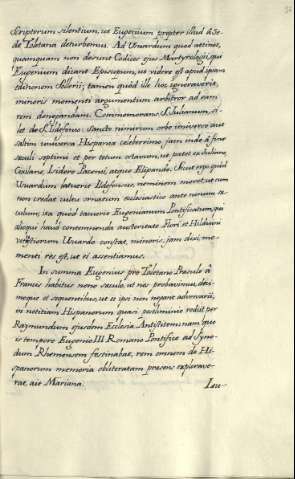 Scriptorum silentium, ut Eugenium propter illud à Se-
de Toletana deturbemus. Ad Usuardum quod attinet,
quamquam non deerunt Codices ejus Martyrologii, qui
Eugenium dicant Episcopum, ut videre est apud ipsam
editionem Sollerii; tamen quod ille hoc ignoraverit,
minoris momenti argumentum arbitror ad eam
rem denegandam. Commemorans S. Julianum, si-
let de S. Ildefonso. Sancto nimirum orbe universo aut
saltim universa Hispania celeberrimo, jam inde à fine
seculi septimi et per totum octavum, ut patet ex Juliano,
Cixilane, Isidoro Pacensi, atque Elipando. Sicut ergo quod
Usuardum latuerit Ildefonsus, neminem movet, ut eum
non credat cultu ornatum ecclesiastico ante nonum se-
culum; ita quod tacuerit Eugenianum Pontificatum, qui
alioqui haud contemnenda auctoritate Flori et Hilduini
vetustiorum Usuardo constat, minoris, jam dixi, mo-
menti res est, ut ei assentiamus.
In summa Eugenius pro Toletano Præsule à
Francis habitus nono seculo, ut nos probavimus, deci-
moque et sequentibus, ut ii ipsi non negant adversarii,
in notitiam Hispanorum quasi postliminio rediit per
Raymundum ejusdem Ecclesiæ Antistitem: nam quo
is tempore Eugenio III. Romano Pontifice ad Syno-
dum Rhemensem festinabat, rem omnem de Hi-
spanorum memoria obliteratam præsens expiscave-
rat, ait Mariana.
Lau-